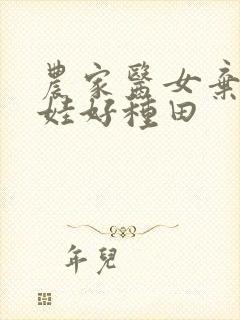 農家醫女棄
娃好種田
年兒